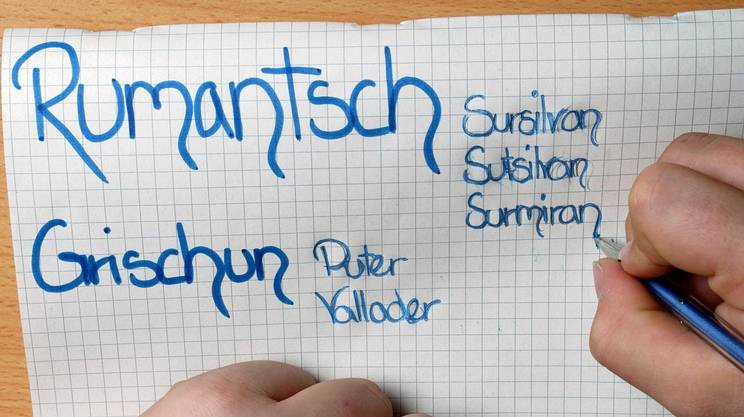 Rumantsch
Grischun
Sursilvan
Sutsilvan
Surmiran
Puter
Vallader